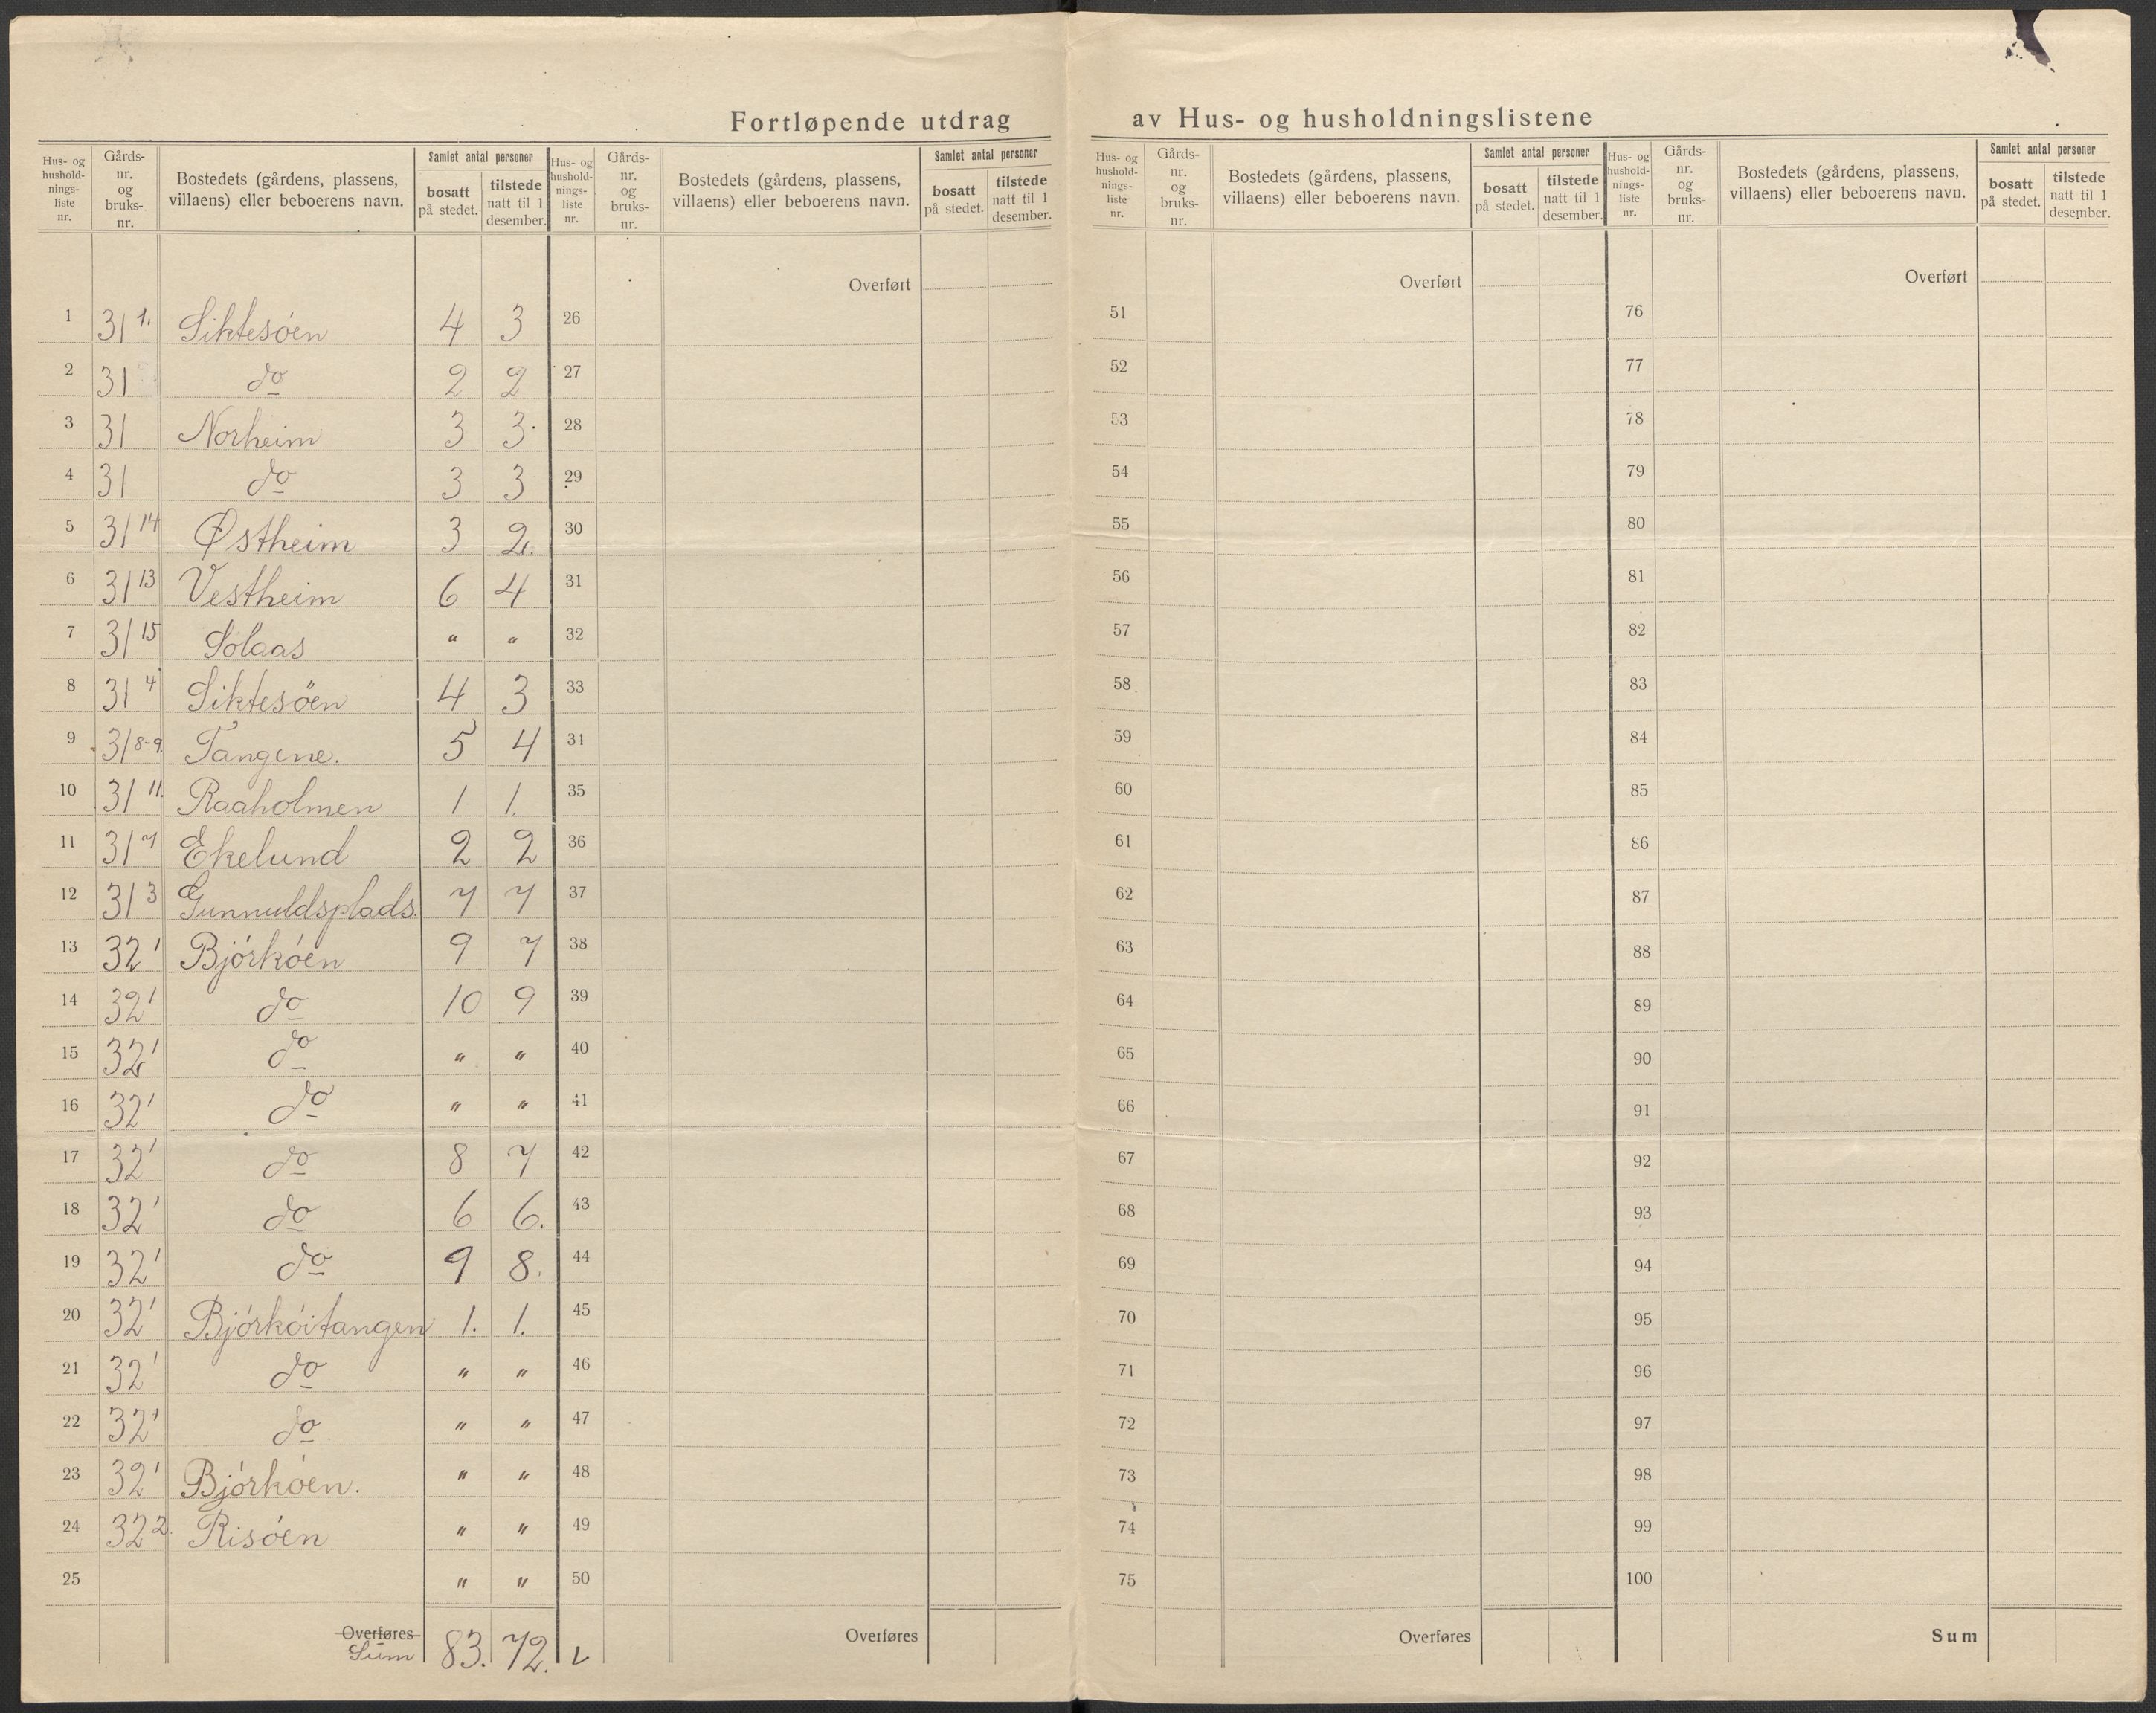 Fortløpende utdrag av Hus- og husholdningslistene
Hus- og hushold-nings-liste nr. Gårds-nr. og bruks-nr. Bostedets (gårdens, plassens, villaens) eller beboerens navn. Samlet antal personer bosatt på stedet. tilstede natt til 1 desember.
Hus- og hushold-nings-liste nr. Gårds-nr. og bruks-nr. Bostedets (gårdens, plassens, villaens) eller beboerens navn. Samlet antal personer bosatt på stedet. tilstede natt til 1 desember.
Hus- og hushold-nings-liste nr. Gårds-nr. og bruks-nr. Bostedets (gårdens, plassens, villaens) eller beboerens navn. Samlet antal personer bosatt på stedet. tilstede natt til 1 desember.
Hus- og hushold-nings-liste nr. Gårds-nr. og bruks-nr. Bostedets (gårdens, plassens, villaens) eller beboerens navn. Samlet antal personer bosatt på stedet. tilstede natt til 1 desember.
Overført Overført Overført
1 31 1. Siktesöen 4 3 26 51 76
2 31 do 2 2 27 52 77
3 31 Norheim 3 3. 28 53 78
4 31 do 3 3 29 54 79
5 31 14 Østheim 3 2. 30 55 80
6 31 13 Vestheim 6 4 31 56 81
7 31 15 Solaas " " 32 57 82
8 31 4 Siktesöen 4 3 33 58 83
9 31 8-9 Tangene. 5 4 34 59 84
10 31 11. Raaholmen 1 1. 35 60 85
11 31 7 Ekelund 2 2 36 61 86
12 31 3 Gunnuldsplads. 7 7 37 62 87
13 32 1 Björköen 9 7 38 63 88
14 32 1 do 10 9 39 64 89
15 32 1 do " " 40 65 90
16 32 1 do " " 41 66 91
17 32 1 do 8 7 42 67 92
18 32 1 do 6 6. 43 68 93
19 32 1 do 9 8. 44 69 94
20 32 1 Björköitangen 1. 1. 45 70 95
21 32 1 do " " 46 71 96
22 32 1 do " " 47 72 97
23 32 1 Björköen. " " 48 73 98
24 32 2. Risöen " " 49 74 99
25 " " 50 75 100
Overføres Overføres Overføres Sum
Sum 83. 72.